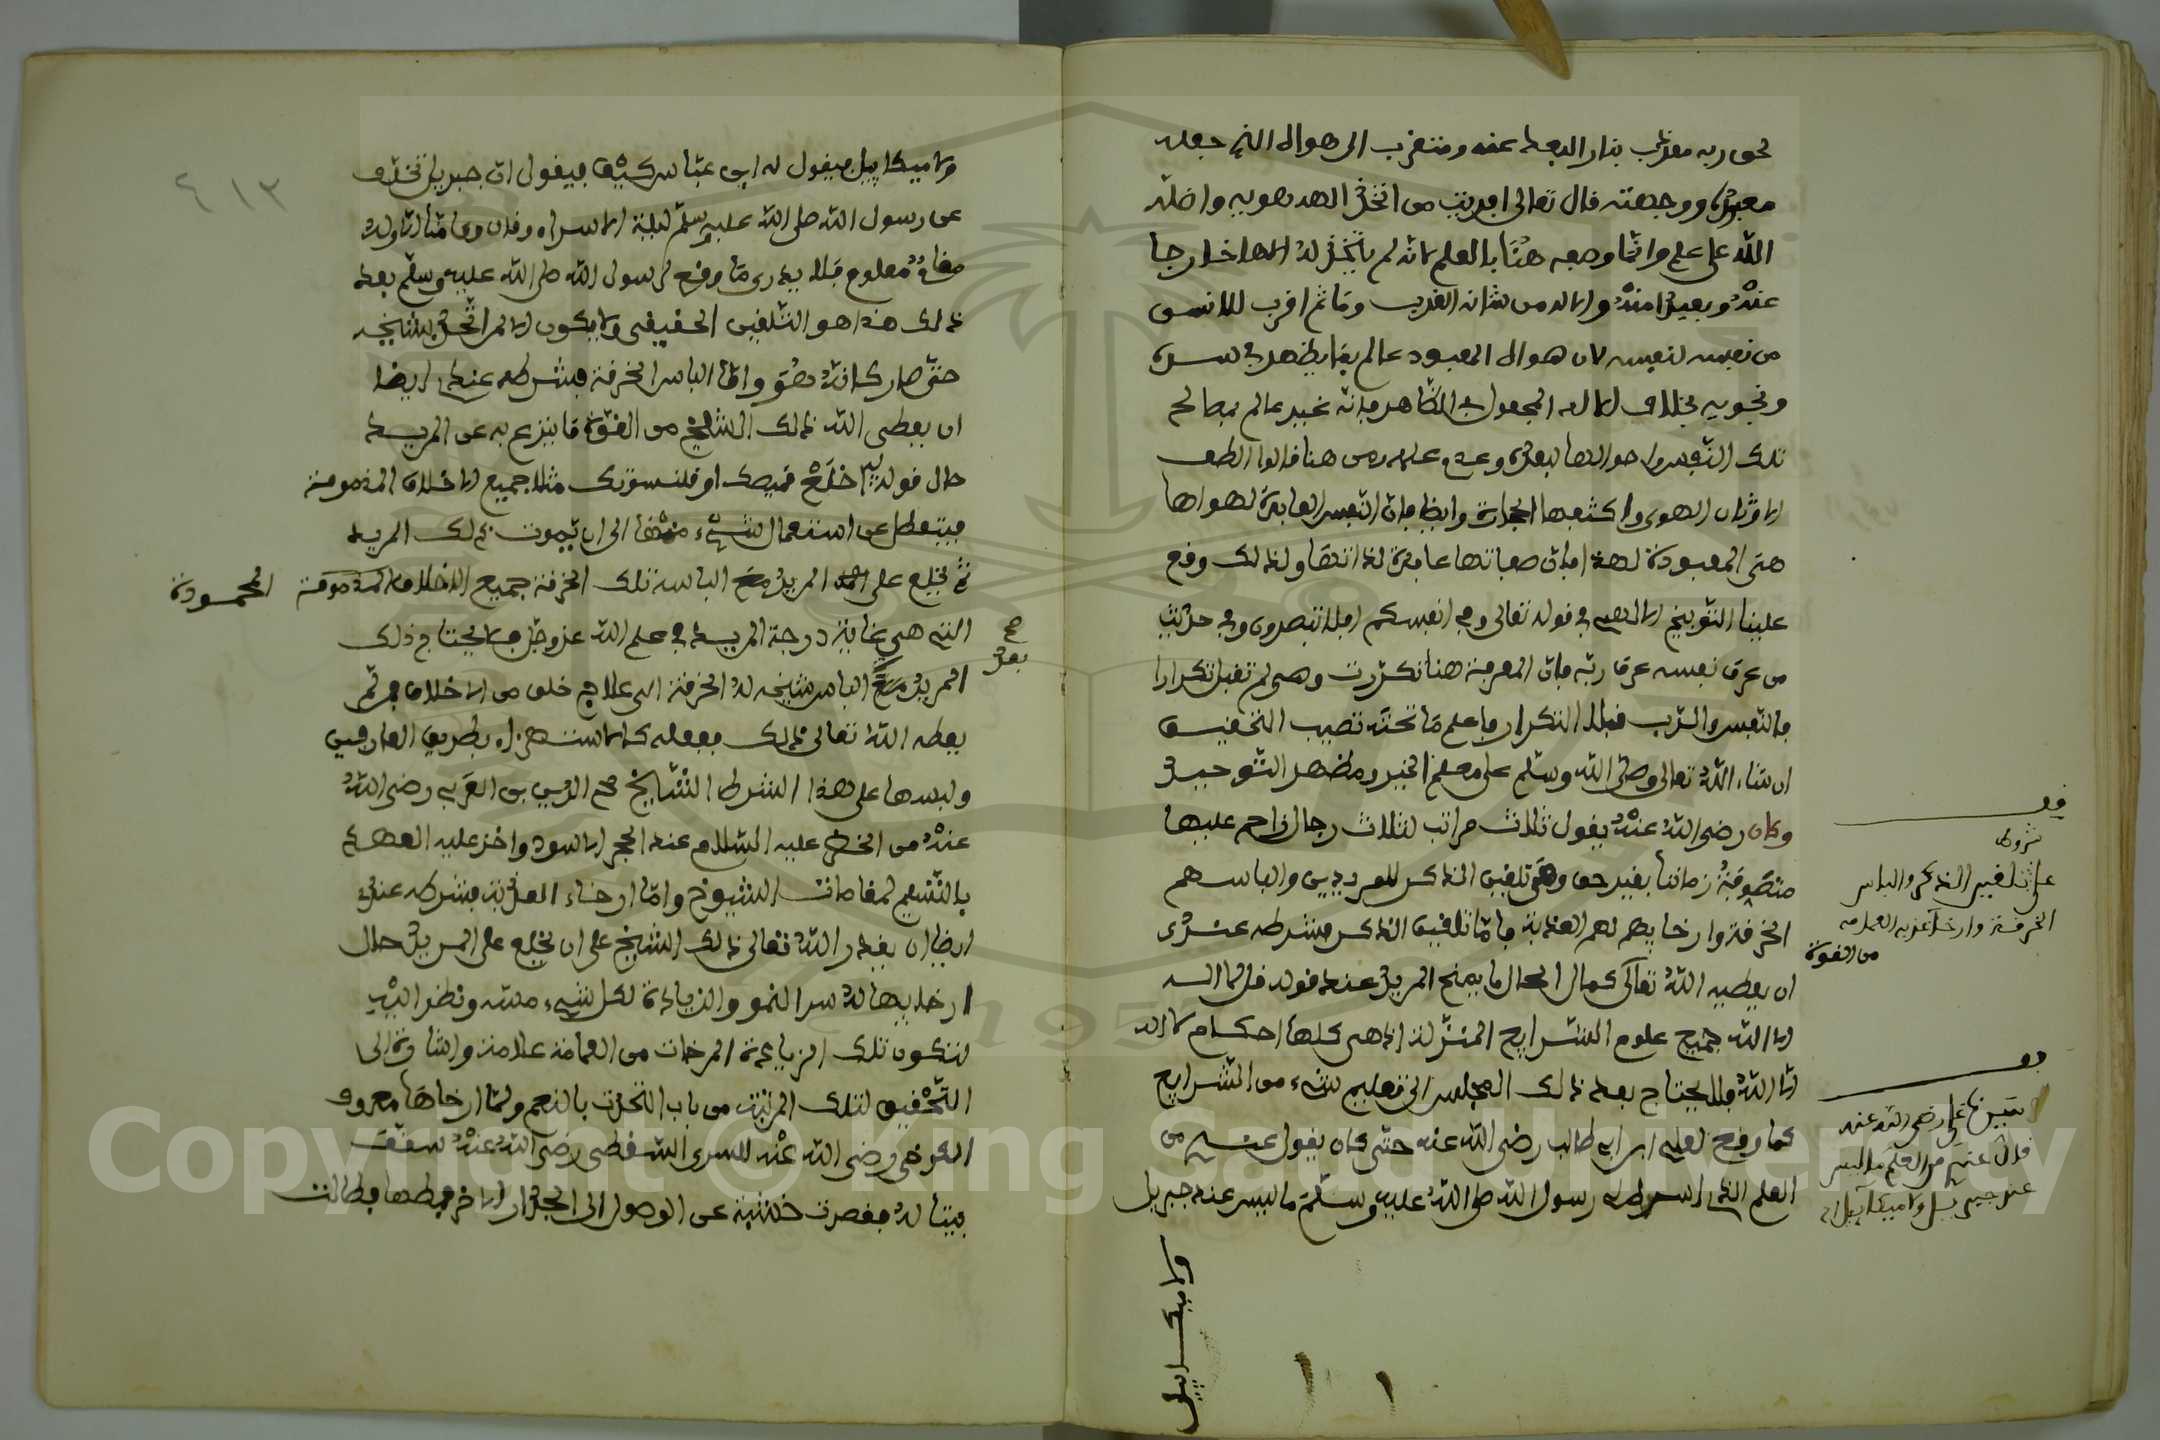 لحق ربه معذب بنار البعد عنه ومتقرب الى هواه الذي جعله
معبوده ووجهته قال تعالى افرايت من اتخذ الهه هويه واضله
الله على علم وانما وصفه هنا بالعلم لانه لم يتخذ له الاها خارجا
عنه وبعيدا منه والاله من شانه القرب وما ثم اقرب للانسان
من نفسه لنفسه لان هواه المعبود عالم بما يظهر في سره
ونجويه بخلاف الاله المجعول في الظاهر فانه غير عالم بمصالح
تلك النفس واحوالها لبعده وعدم علمه ومن هنا قالوا الطف
الاوثان الهوى واكثفها الحجارة وايضا فان النفس العابدة لهواها
هي المعبودة لها فان صفاتها عابدة لذاتها ولذلك وقع
علينا التوبيخ الالهي في قوله تعالى وفي انفسكم افلا تبصرون وفي حديث
من عرف نفسه عرف ربه فان المعرفة هنا تكررت وهي لم تقبل تكرارا
فالنفس والرب قبلا التكرار فاعلم ما تحته تصيب التحقيق
ان شاء الله تعالى وصلى الله وسلم على معلم الخير ومظهر التوحيد
وكان رضي الله عنه يقول ثلاث مراتب لثلاث رجال زاحم عليها
متصوفة زماننا بغير حق وهي تلقين الذكر للمريدين والباسهم
الخرقة وارخايهم لهم العذبة فاما تلقين الذكر فشرطه عندي
ان يعطيه الله تعالى كمال الحال ما يمنح المريد عند قوله قل لا اله
الا الله جميع علوم الشرايع المنزلة اذ هي كلها احكام لا اله
الا الله فلا يحتاج بعد ذلك المجلس الى تعليم شيء من الشرايع
كما وقع لعلي ابن ابي طالب رضي الله عنه حتى كان يقول عندي من
العلم الذي اسره الي رسول الله صلى الله عليه وسلم ما ليس عند جبريل
ولا ميكاييل
قف
شروط
على تلقين الذكر والباس
الخرقة وارخا عذبة العمامة
من القوة
قف
سيدنا علي رضي الله عنه
قال عندي من العلم ما ليس
عند جبريل ولا ميكاييل الخ
٤١٣
ولا ميكاييل فيقول له ابن عباس كيف فيقول ان جبريل تخلف
عن رسول الله صلى الله عليه وسلم ليلة الاسراء وقال وما منا الا وله
مقام معلوم فلا يدرى ما وقع لرسول الله صلى الله عليه وسلم بعد
ذلك هذا هو التلقين الحقيقي ولا يكون الا لمن اتحد بشيخه
حتى صار كانه هو واما الباس الخرقة فشرطه عندي ايضا
ان يعطي الله ذلك الشيخ من القوة ما ينزع به عن المريد
حال قوله له اخلع قميصك او قلنسوتك مثلا جميع الاخلاق المذمومة
فيتعطل عن استعمال شيء منها الى ان يموت ذلك المريد
ثم يخلع على المريد مع الباسه تلك الخرقة جميع الاخلاق المحمودة
التي هي غاية درجة المريد في علم الله عز وجل فلا يحتاج ذلك
صح
بعد
المريد بعد الباس شيخه له الخرقة الى علاج خلق من الاخلاق فمن لم
يعطه الله تعالى ذلك ففعله كالاستهزاء بطريق العارفين
ولبسها على هذا الشرط الشيخ محي الدين بن العربي رضي الله
عنه من الخضر عليه السلام عند الحجر الاسود واخذ عليه العهد
بالتسليم لمقامات الشيوخ واما ارخاء العذبة فشرطه عندي
ايضا ان يقدر الله تعالى ذلك الشيخ على ان يخلع على المريد حال
ارخايها له سر النمو والزيادة لكل شيء مسه ونظر اليه
لتكون تلك الزيادة المرخات من العمامة علامة واشارة الى
التحقيق لتلك المرتبة من باب التحدث بالنعم ولما ارخاها معروف
الكرخي رضي الله عنه للسري السقطي رضي الله عنه سقف
بيتا له فقصرت خشبة عن الوصول الى الجدار الاخر فمطها فطالت